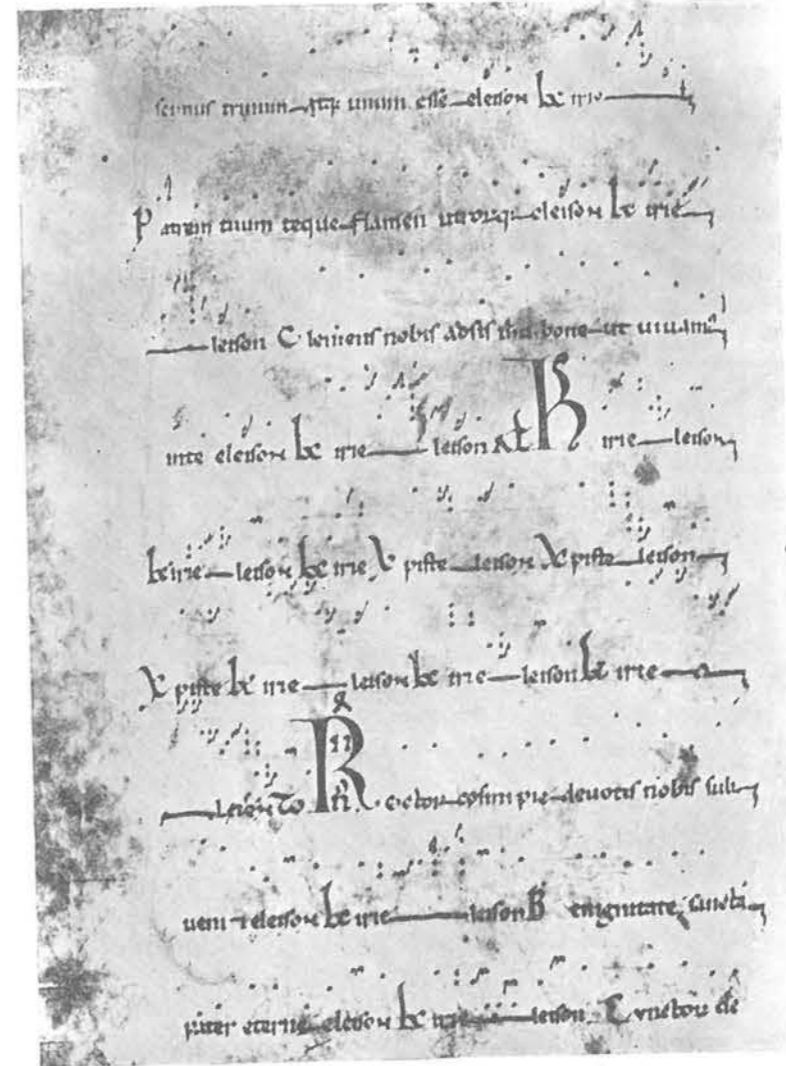 scimus trinum atq; unum esse eleison kc irie
Patrem tuum teque flamen utrorq; eleison kc irie
leison Clemens nobis adsis bone ut uiuam
inte eleison kc irie leison K irie leison
kc irie leison kc irie Xpiste leison Xpiste leison
Xpiste kc irie leison kc irie leison kc irie
leison R ector cosmi pie deuotis nobis sub
ueni eleison kc irie leison B enignitate
eterne eleison kc irie leison Cunctor